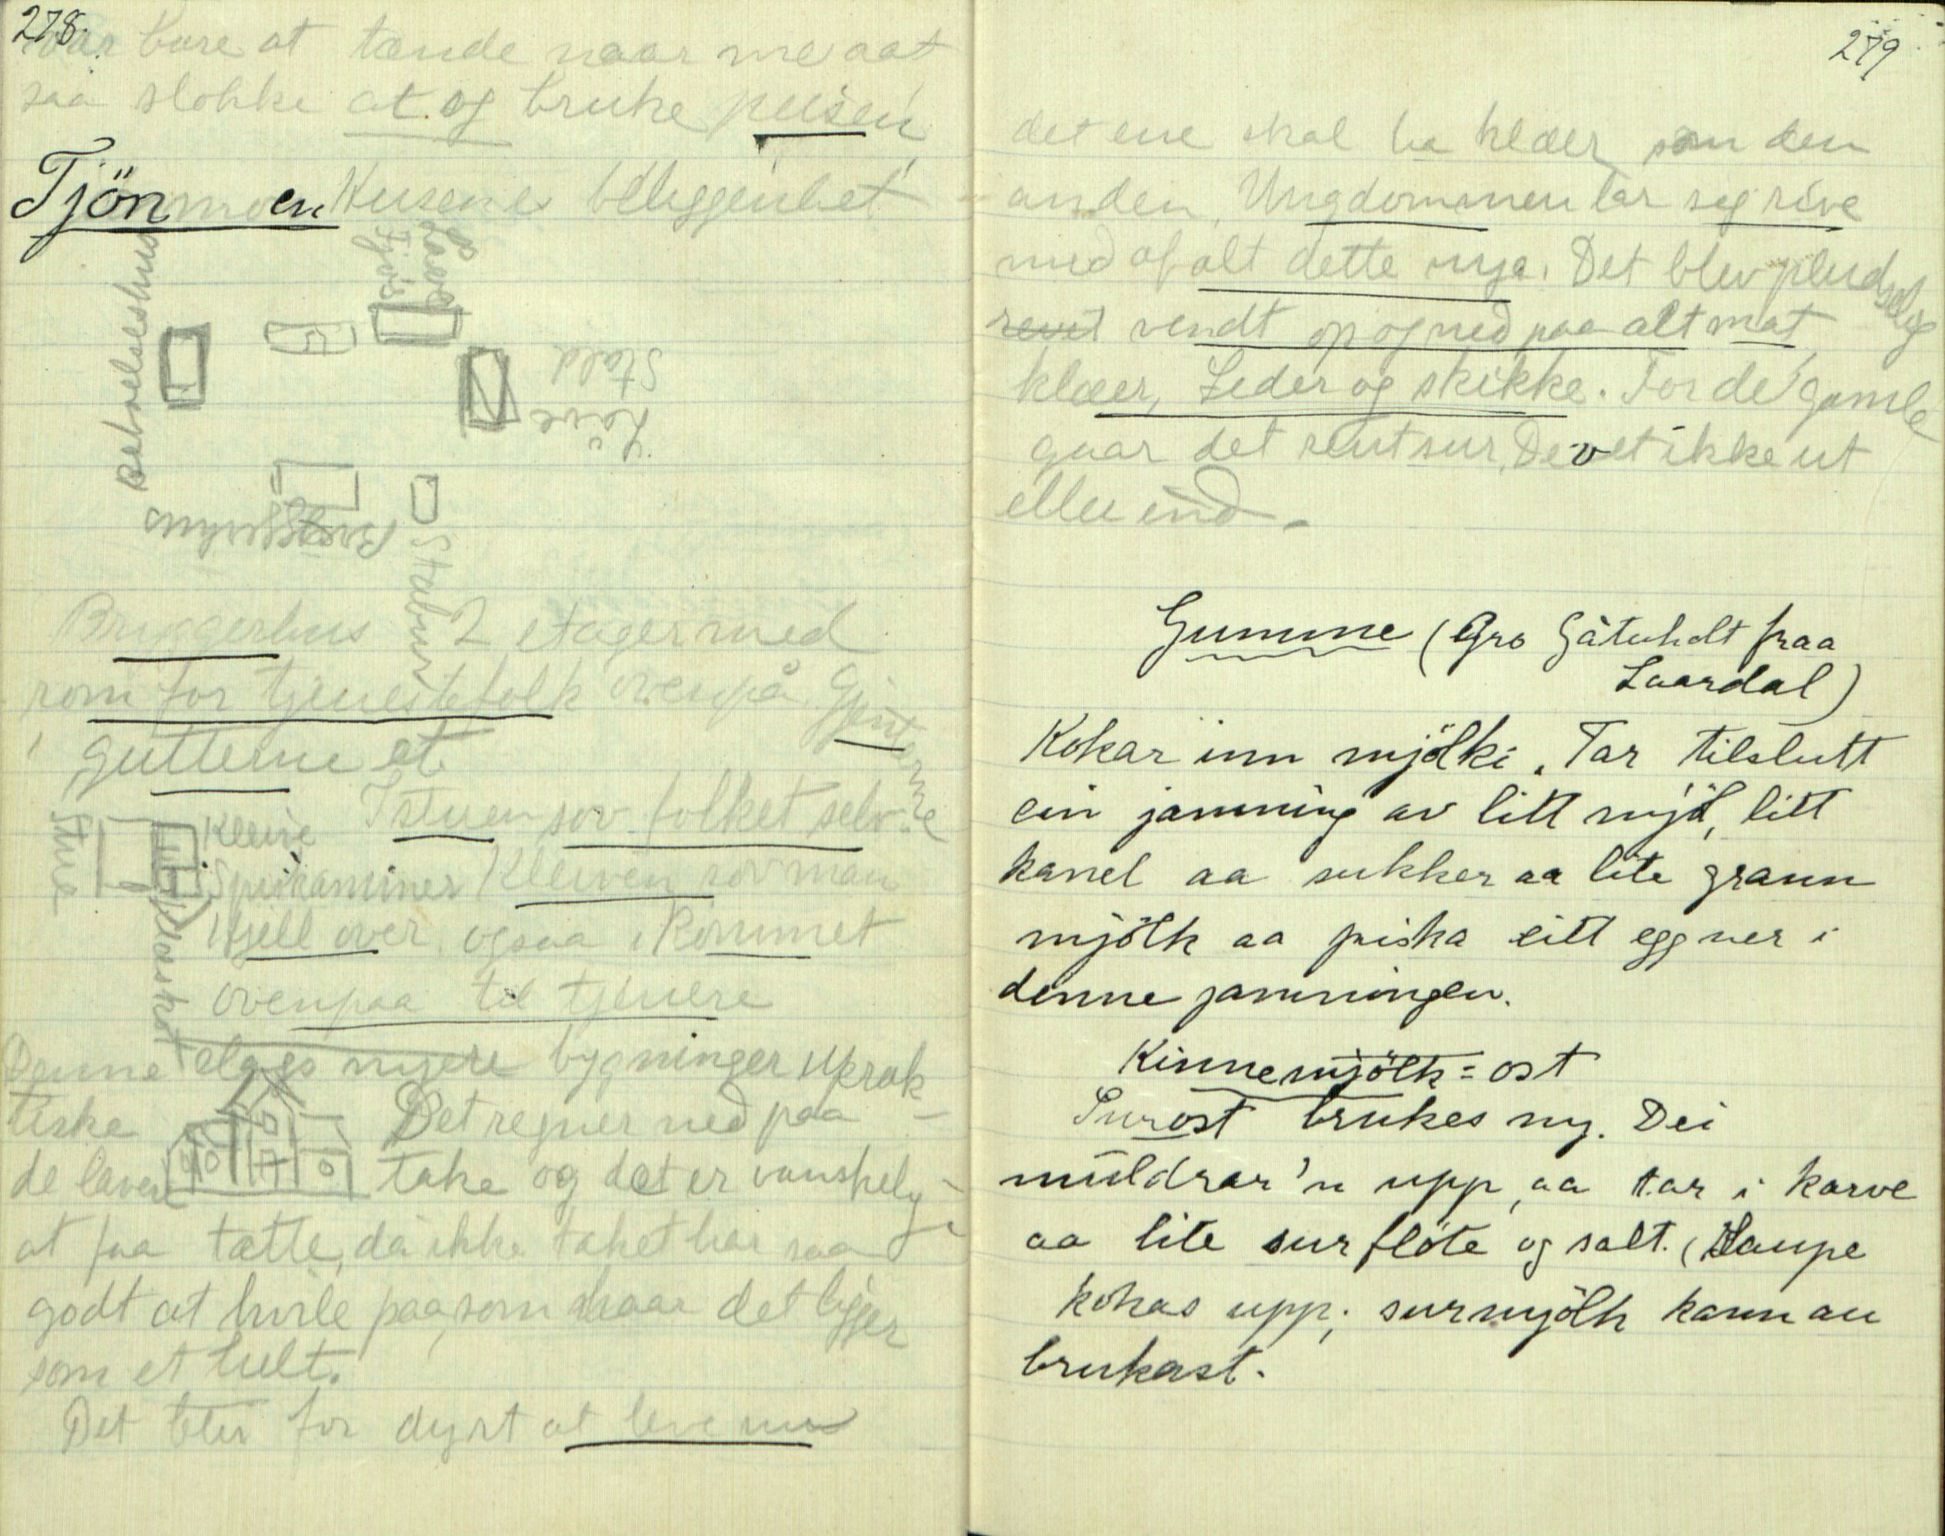 278.
var bare at tænde naar me aat
saa slokke at og bruke peisen
Tjönmoen Husenes beliggenhet
Betvelalshus
Fjös
Stald
Löive
Bryggerhus
Stabur
Bryggerhus 2 etager med
rom for tjenestefolk ovenpå Gjenterne
i gutterne et
Stue
Kleive I stuen sov folket selv.
Spiskammer Kleiven sov man
Kjell over, ogsaa i Rommet
ovenpaa til tjenere
Denne slags nyere bygninger uprak-
tiske Det regner ned paa
de lavere take og det er vanskelig
at faa tætte, da ikke taket har saa
godt at hvile paa, som naar det ligger
som et helt.
Det blir for dyrt at leve nu
279
det ene skal ha klæer som den
anden, Ungdommen lar seg rive
med af alt dette nye. Det blev pludselig
revet vendt op og ned paa alt mat,
klæer, Leder og skikke. For de gamle
gaar det rent sur, De vet ikke ut
eller ind –
Gumme (Gro Gåtuholt fraa
Laardal)
Kokar inn mjölki. Tar tilslutt
ein jamning av litt mjöl, litt
kanel aa sukker aa lite grann
mjölk aa piska eitt egg ner i
denne jamningen.
Kinnemjölk = ost
Surost brukes ny. Dei
muldrar'n upp, aa tar i karve
aa lite sur flöte og salt. (Saupe
kokas upp; surmjölk kann au
brukast.